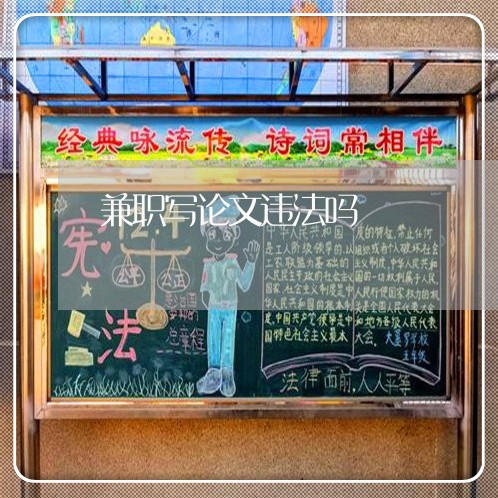 经典咏流传 诗词常相伴
兼职写论文违法吗
12.4
宪
法
公平
公正
总章程
中华人民共和国
是工人阶级领导的,以
工农联盟为基础的
人民民主专政的社会主义
国家,社会主义制度是中
华人民共和国的根本制
度,中国共产党领导是中
国特色社会主义最本
质的特征,禁止任何
组织或者个人破坏社会
主义制度,中华人民共和
国的一切权利属于人民,
人民行使国家权力的机
关是全国人民代表大会
和地方各级人民代表
大会.
五年级
法律面前,人人平等